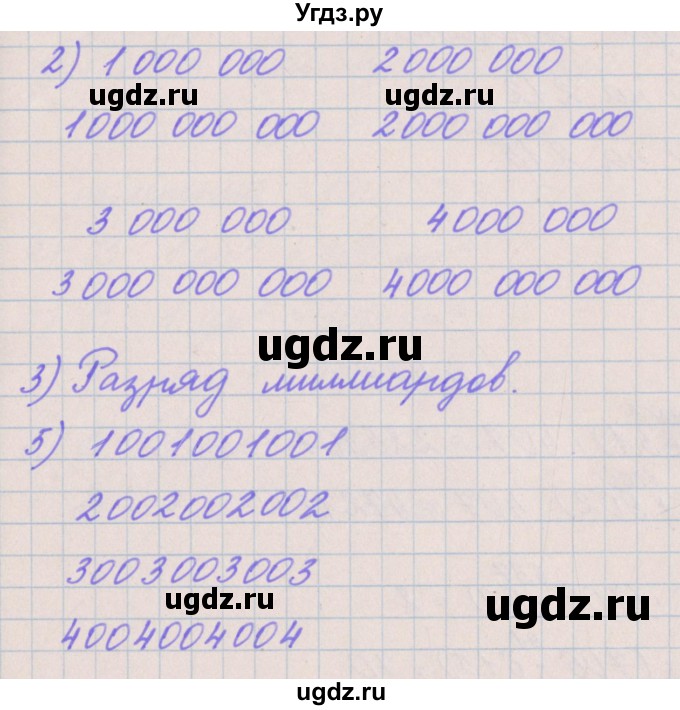 Угдз.ру
2) 1 000 000 2 000 000
ugdz.ru ugdz.ru
1 000 000 000 2 000 000 000
3 000 000 4 000 000
3 000 000 000 4000 000 000
ugdz.ru
3) Разряд миллиардов.
5) 1001001001
2002002002
3003003003
ugdz.ru ugdz.ru
4004004004
ugdz.ru